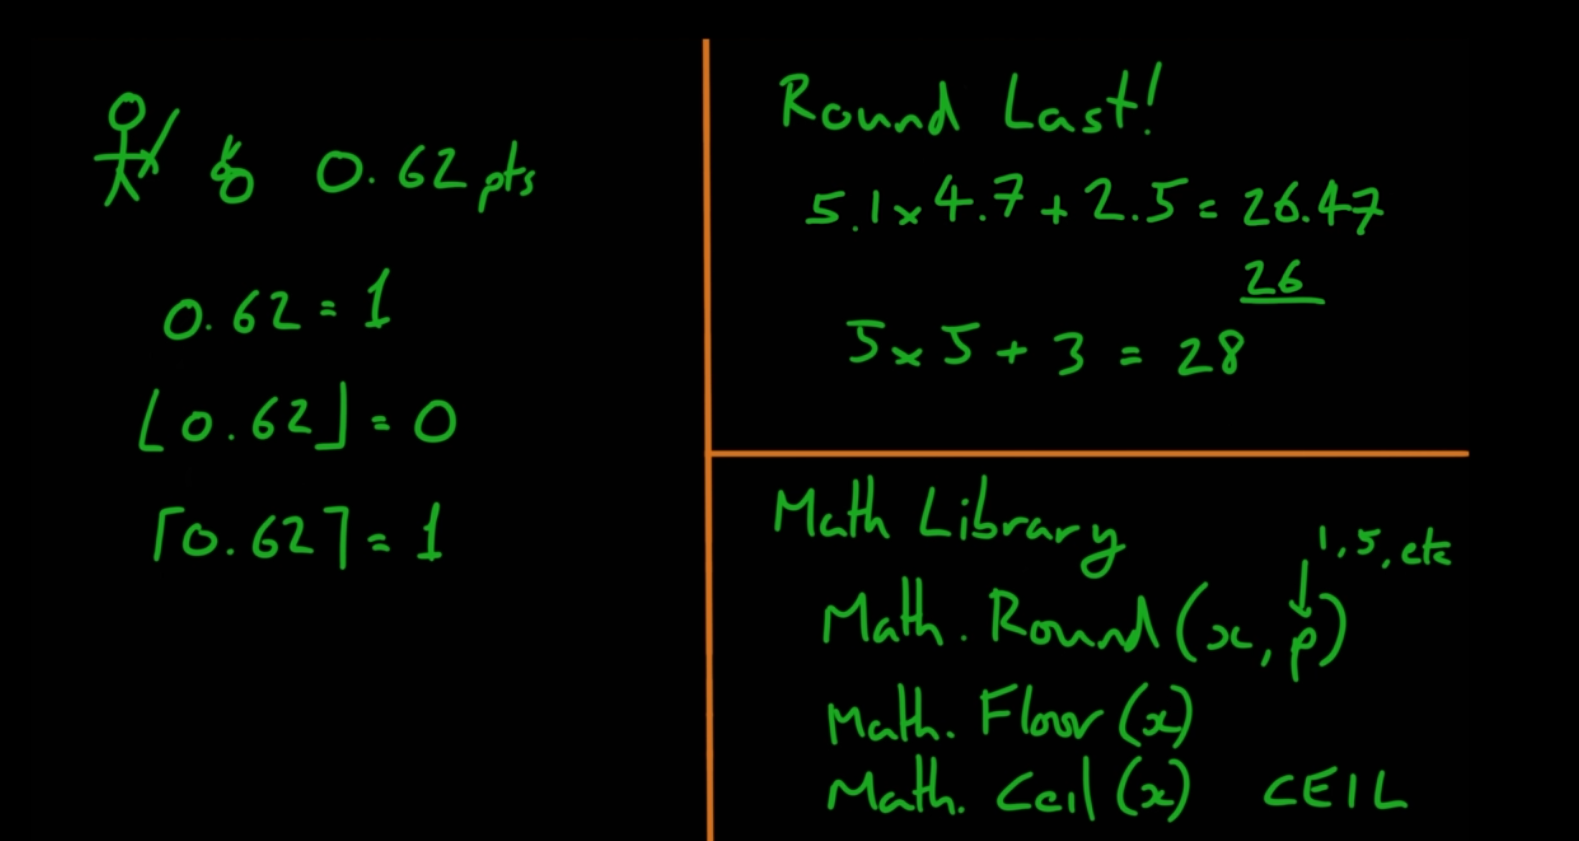 0.62 pts
0.62 = 1
⌊0.62⌋ = 0
⌈0.62⌉ = 1
Round Last!
5.1 x 4.7 + 2.5 = 26.47
26
5 x 5 + 3 = 28
Math Library
1, 5, etc
Math. Round (x, p)
Math. Floor (x)
Math. Ceil (x) CEIL